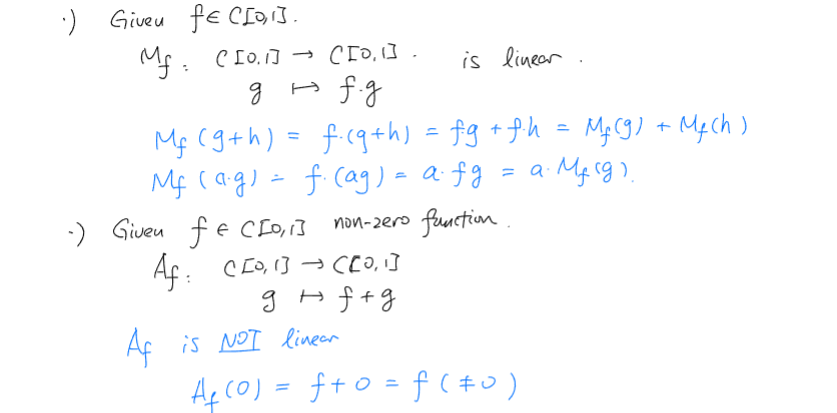 ·) Given f ∈ C[0,1].
M_f : C[0,1] → C[0,1]. is linear.
g ↦ f·g
M_f (g+h) = f·(g+h) = fg + f·h = M_f(g) + M_f(h)
M_f (a·g) = f·(ag) = a·fg = a·M_f(g).
·) Given f ∈ C[0,1] non-zero function.
A_f : C[0,1] → C[0,1]
g ↦ f+g
A_f is NOT linear
A_f(0) = f+0 = f (≠0)